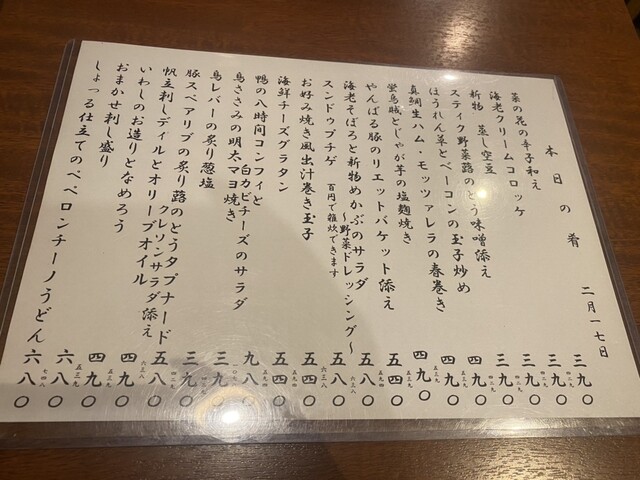 本日の肴
二月一七日
菜の花の辛子和え 三九〇 四二九
海老クリームコロッケ 三九〇 四二九
新物 蒸し空豆 三九〇 四二九
スティク野菜蕗のとう味噌添え 三九〇 四二九
ほうれん草とベーコンの玉子炒め 四九〇 五三九
真鯛生ハム・モッツァレラの春巻き 四九〇 五三九
蛍烏賊とじゃが芋の塩麹焼き 四九〇 五三九
やんばる豚のリエットバケット添え 五四〇 五九四
海老そぼろと新物めかぶのサラダ 五八〇 六三八
〜野菜ドレッシング〜
スンドゥブチゲ 百円で雑炊できます 五八〇 六三八
お好み焼き風出汁巻き玉子 五四〇 五九四
海鮮チーズグラタン 五四〇 五九四
鴨の八時間コンフィと
白カビチーズのサラダ 九八〇
鳥ささみの明太マヨ焼き 三九〇 四二九
鳥レバーの炙り葱塩 三九〇 四二九
豚スペアリブの炙り蕗のとうタプナード
クレソンサラダ添え 五八〇 六三八
帆立刺しディルとオリーブオイル 四九〇
いわしのお造りとなめろう 四九〇 五三九
おまかせ刺し盛り 六八〇
しょっる仕立てのペペロンチーノうどん 六八〇 七四八